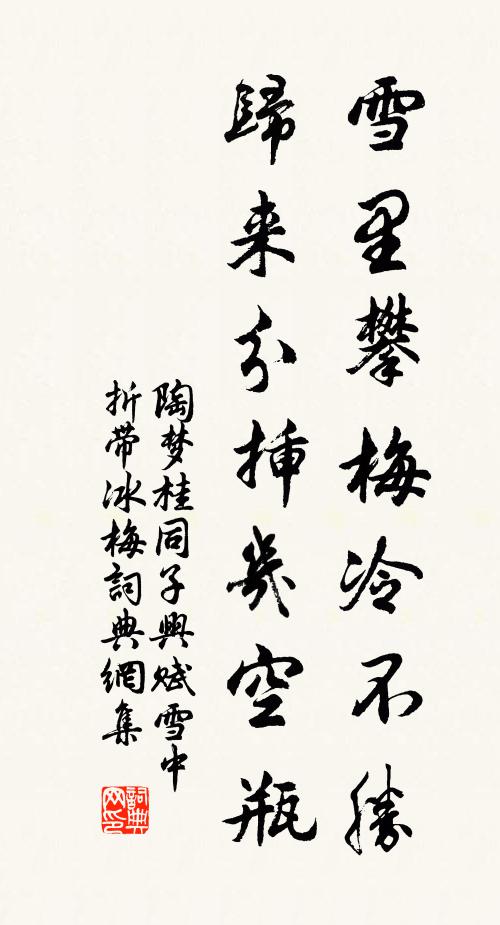 雪里攀梅冷不勝
歸来分揷幾空瓶
陶梦桂同子興赋雪中
折带冰梅詞典網集
詞典
网印